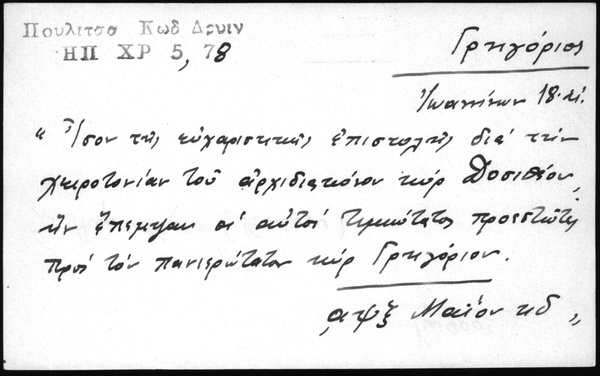 Πουλιτσα Κωδ Δρυιν
ΗΠ ΧΡ 5, 78
Γρηγόριος
Ἰωαννίνων 18. αἰ.
« Ἴσον τῆς εὐχαριστικῆς ἐπιστολῆς διά τήν
χειροτονίαν τοῦ ἀρχιδιακόνου κύρ Δοσιθέου,
ἥν ἔπεμψαν οἱ αὐτοί τιμιώτατοι προεστῶτες
πρός τόν πανιερώτατον κύρ Γρηγόριον.
͵αψξ Μαΐου κδ »